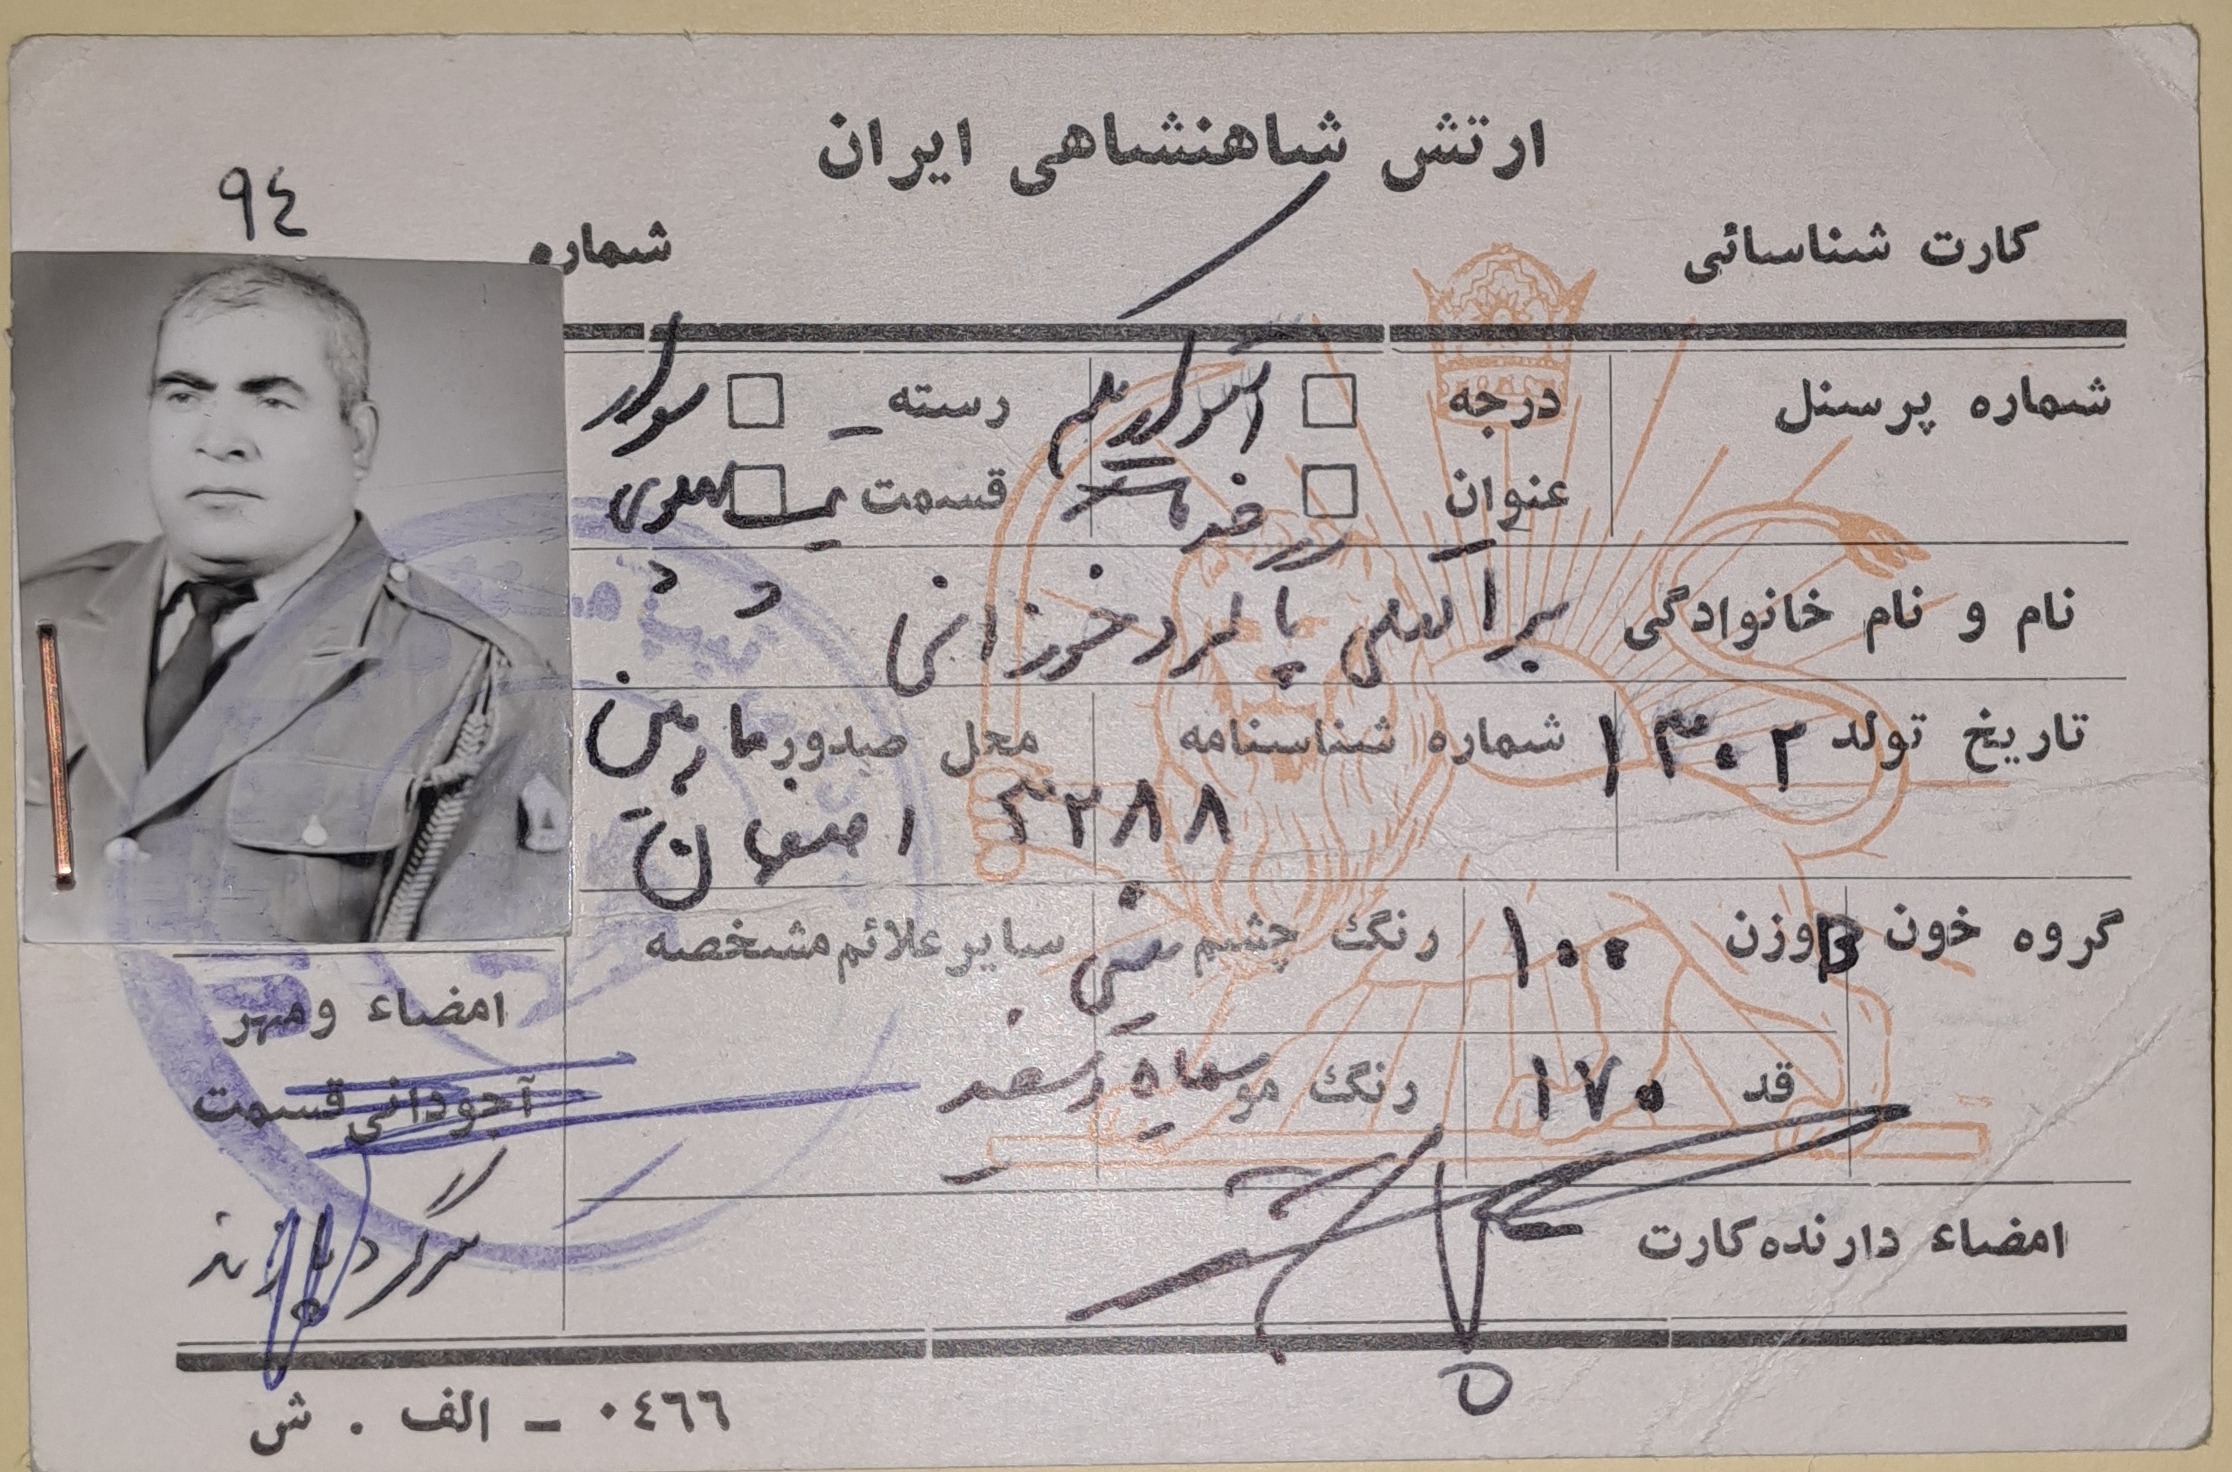 ارتش شاهنشاهی ایران
۹٤
کارت شناسائی شماره
شماره پرسنل درجه استوار یکم رسته سوار
عنوان قسمت
نام و نام خانوادگی براتعلی پالرد خوزانی
تاریخ تولد ۱۳۰۲ شماره شناسنامه ۳۲۸۸ محل صدور ماربین
اصفهان
گروه خون B وزن ۱۰۰ رنگ چشم میشی سایر علائم مشخصه
قد ۱۷۰ رنگ مو سیاه و سفید
امضاء و مهر
آجودانی قسمت
سرگرد
امضاء دارنده کارت
۰٤٦٦ - الف . ش